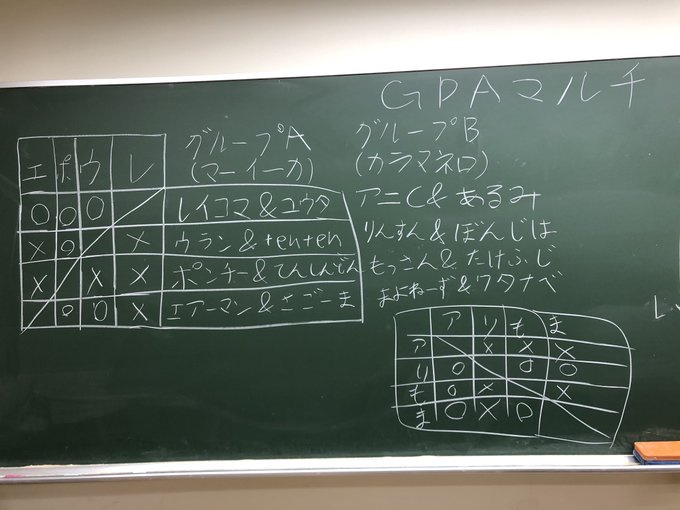 GDAマルチ
グループA
(マーイーカ)
エ ポ ウ レ
○ ○ ○ レイコマ&ユウタ
× ○ × ウラン&tenten
× × × ポンチー&てんしんどん
× ○ ○ × エアーマン&さごーま
グループB
(カラマネロ)
アニC&あるみ
りんすん&ぼんじは
もっさん&たけふじ
まよねーず&ワタナベ
ア り も ま
ア × × ×
り ○ ○ ○
も ○ × ×
ま ○ × ○